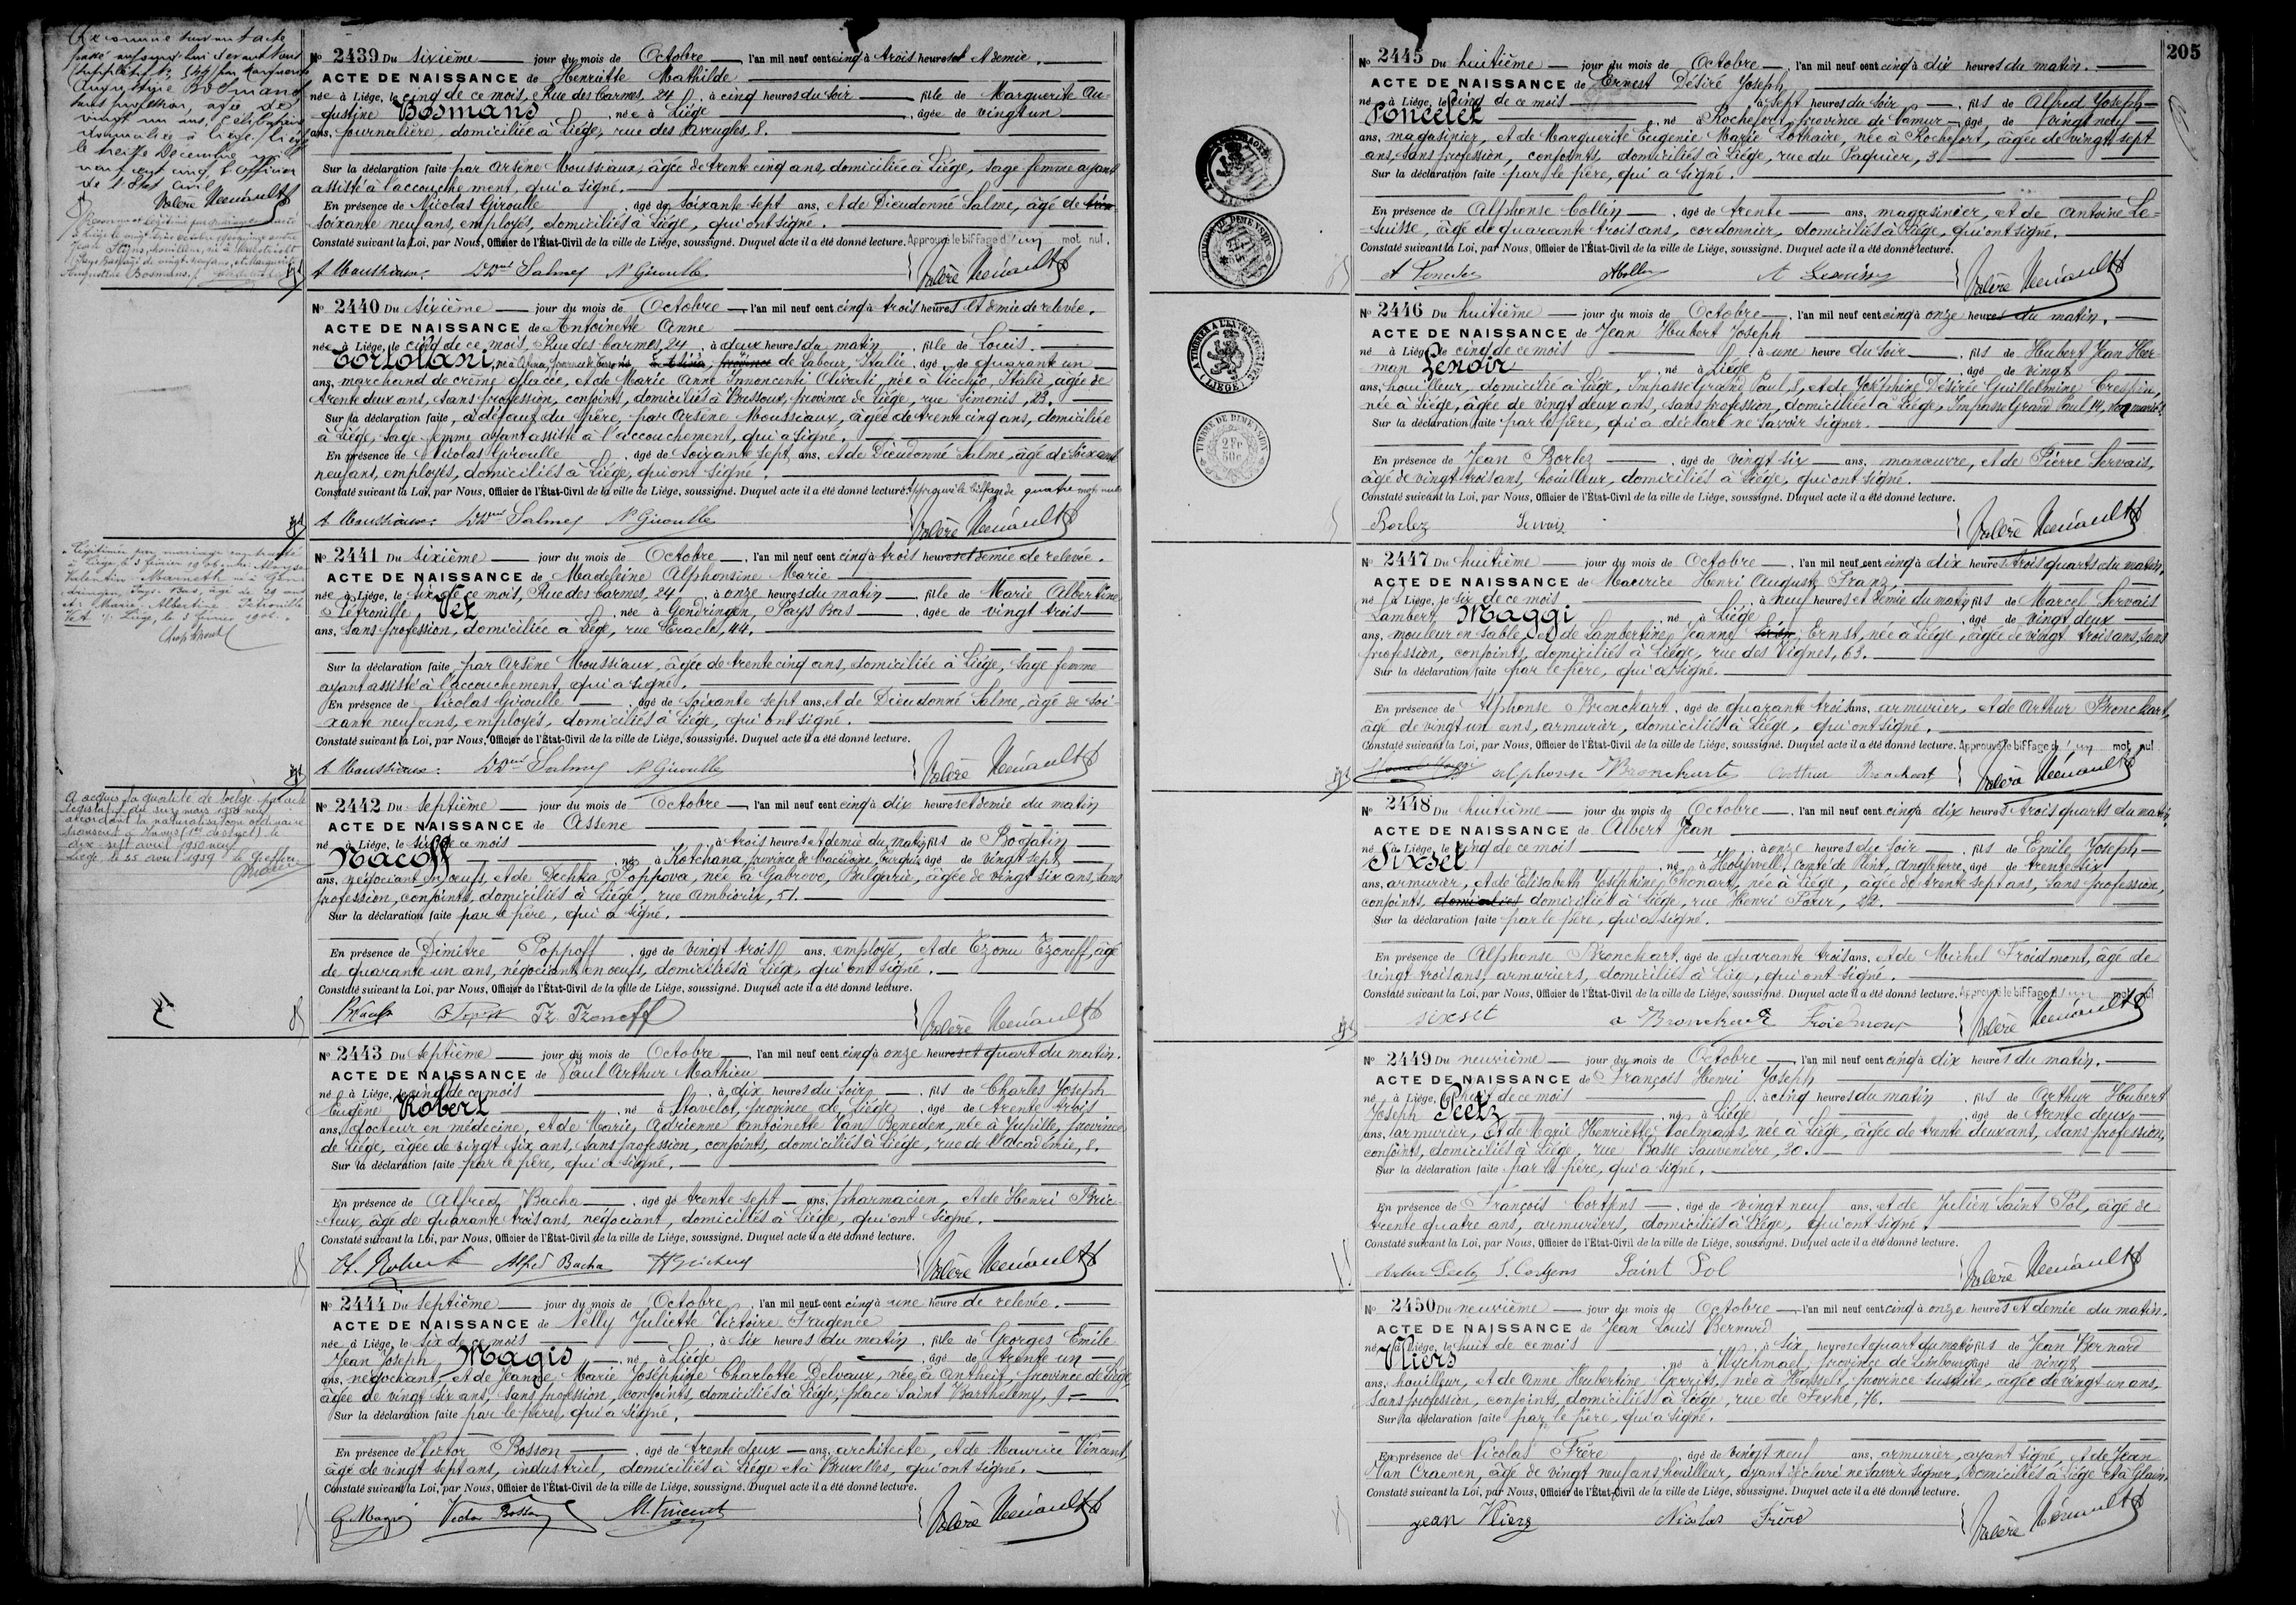 vingt un ans, célibataire
domiciliée à Liège. Liège
le treize Décembre mil
neuf cent cinq. L'officier
de l'Etat Civil
Valère Hénault
Nº 2439 Du sixième jour du mois de Octobre, l'an mil neuf cent cinq à trois heures et demie.
ACTE DE NAISSANCE de Henriette Mathilde
née à Liége, le cinq de ce mois, Rue des Carmes, 24, à cinq heures du soir fille de Marguerite Au-
gustine Bosmans, née à Liége, âgée de vingt un
ans, journalière, domiciliée à Liége, rue des Aveugles, 8.
Sur la déclaration faite par Arsène Moussiaux, âgée de trente cinq ans, domiciliée à Liége, sage femme ayant
assisté à l'accouchement, qui a signé.
En présence de Nicolas Giroulle, âgé de soixante sept ans, et de Dieudonné Salme, âgé de
soixante neuf ans, employés, domiciliés à Liége, qui ont signé.
Constaté suivant la Loi, par Nous, Officier de l'État-Civil de la ville de Liége, soussigné. Duquel acte il a été donné lecture. Approuvé le biffage d'un mot nul.
A Moussiaux. Dd né Salme N Giroulle Valère Hénault
Nº 2440 Du sixième jour du mois de Octobre, l'an mil neuf cent cinq à trois heures et demie de relevée.
ACTE DE NAISSANCE de Antoinette Anne
née à Liége, le cinq de ce mois, Rue des Carmes, 24, à deux heures du matin, fille de Louis
Tortolani, né à de Labour, Italie, âgé de quarante un
ans, marchand de crème glacée, et de Marie Anne Innoncenti Oliviati, née à Vicchio, Italie, âgée de
trente deux ans, sans profession, conjoints, domiciliés à Bressoux, province de Liége, rue Simonis, 23.
Sur la déclaration faite, à défaut du père, par Arsène Moussiaux, âgée de trente cinq ans, domiciliée
à Liége, sage femme ayant assisté à l'accouchement, qui a signé.
En présence de Nicolas Giroulle, âgé de soixante sept ans, et de Dieudonné Salme, âgé de soixante
neuf ans, employés, domiciliés à Liége, qui ont signé.
Constaté suivant la Loi, par Nous, Officier de l'État-Civil de la ville de Liége, soussigné. Duquel acte il a été donné lecture. Approuvé le biffage de quatre mots nuls
A Moussiaux. Dd né Salme N Giroulle Valère Hénault
Légitimée par mariage contracté
à Liège, le 3 février 1906, entre Aloyse
Valentin Marneth né à Gen-
dringen, Pays-Bas, âgé de 29 ans
et Marie Albertine Pétronille
Vet. Liège, le 3 février 1906.
Nº 2441 Du sixième jour du mois de Octobre, l'an mil neuf cent cinq à trois heures et demie de relevée.
ACTE DE NAISSANCE de Madeleine Alphonsine Marie
née à Liége, le six de ce mois, Rue des Carmes, 24, à onze heures du matin, fille de Marie Albertine
Pétronille Vet, née à Gendringen, Pays Bas, âgée de vingt trois
ans, sans profession, domiciliée à Liége, rue Eracle, 44.
Sur la déclaration faite par Arsène Moussiaux, âgée de trente cinq ans, domiciliée à Liége, sage femme
ayant assisté à l'accouchement, qui a signé.
En présence de Nicolas Giroulle, âgé de soixante sept ans, et de Dieudonné Salme, âgé de soi-
xante neuf ans, employés, domiciliés à Liége, qui ont signé.
Constaté suivant la Loi, par Nous, Officier de l'État-Civil de la ville de Liége, soussigné. Duquel acte il a été donné lecture.
A Moussiaux. Dd né Salme N Giroulle Valère Hénault
A acquis la qualité de belge par acte
législatif du seize mars 1950 neuf
accordant la naturalisation ordinaire
transcrit à Anvers (1er district) le
dix sept avril 1950 neuf
Liège le 25 avril 1959 Le Greffier
Nº 2442 Du septième jour du mois de Octobre, l'an mil neuf cent cinq à dix heures et demie du matin
ACTE DE NAISSANCE de Assene
né à Liége, le six de ce mois à trois heures et demie du matin, fils de Bogdatin
Nacoff, né à Kotchana, province de Macédoine, Turquie, âgé de vingt sept
ans, négociant en œufs, et de Dechka Poppova, née à Gabrovo, Bulgarie, âgée de vingt six ans, sans
profession, conjoints, domiciliés à Liége, rue Ambiorix, 51.
Sur la déclaration faite par le père, qui a signé.
En présence de Dimitre Poppoff, âgé de vingt trois ans, employé, et de Tzonu Tzoneff, âgé
de quarante un ans, négociant en œufs, domiciliés à Liége, qui ont signé.
Constaté suivant la Loi, par Nous, Officier de l'État-Civil de la ville de Liége, soussigné. Duquel acte il a été donné lecture.
Tz Tzoneff Valère Hénault
Nº 2443 Du septième jour du mois de Octobre, l'an mil neuf cent cinq à onze heures et quart du matin.
ACTE DE NAISSANCE de Paul Arthur Mathieu
né à Liége, le cinq de ce mois, à dix heures du soir, fils de Charles Joseph
Eugène Robert, né à Stavelot, province de Liége, âgé de trente trois
ans, docteur en médecine, et de Marie Adrienne Antoinette Van Beneden, née à Jupille, province
de Liége, âgée de vingt six ans, sans profession, conjoints, domiciliés à Liége, rue de l'Académie, 8.
Sur la déclaration faite par le père, qui a signé.
En présence de Alfred Bacha, âgé de trente sept ans, pharmacien, et de Henri Bric-
teux, âgé de quarante trois ans, négociant, domiciliés à Liége, qui ont signé.
Constaté suivant la Loi, par Nous, Officier de l'État-Civil de la ville de Liége, soussigné. Duquel acte il a été donné lecture.
Ch. Robert Alfred Bacha Valère Hénault
Nº 2444 Du septième jour du mois de Octobre, l'an mil neuf cent cinq à une heure de relevée.
ACTE DE NAISSANCE de Nelly Juliette Victoire Eugénie
née à Liége, le six de ce mois, à six heures du matin, fille de Georges Emile
Jean Joseph Magis, né à Liége, âgé de trente un
ans, négociant, et de Jeanne Marie Joséphine Charlotte Delvaux, née à Antheit, province de Liége,
âgée de vingt six ans, sans profession, conjoints, domiciliés à Liége, place Saint Barthélemy, 9.
Sur la déclaration faite par le père, qui a signé.
En présence de Victor Bosson, âgé de trente deux ans, architecte, et de Maurice Vincent,
âgé de vingt sept ans, industriel, domiciliés à Liége et à Bruxelles, qui ont signé.
Constaté suivant la Loi, par Nous, Officier de l'État-Civil de la ville de Liége, soussigné. Duquel acte il a été donné lecture.
G. Magis Victor Bosson M. Vincent Valère Hénault
205
A TIMBRER A L'EXTRAORDINAIRE (LIEGE)
TIMBRE DE DIMENSION 2 Fr. 50c
Nº 2445 Du huitième jour du mois de Octobre, l'an mil neuf cent cinq à dix heures du matin.
ACTE DE NAISSANCE de Ernest Désiré Joseph
né à Liége, le cinq de ce mois à sept heures du soir, fils de Alfred Joseph
Poncelet, né à Rochefort, province de Namur, âgé de vingt neuf
ans, magasinier, et de Marguerite Eugénie Marie Lothaire, née à Rochefort, âgée de vingt sept
ans, sans profession, conjoints, domiciliés à Liége, rue du Paquier, 3.
Sur la déclaration faite par le père, qui a signé.
En présence de Alphonse Collin, âgé de trente ans, magasinier, et de Antoine Le-
suisse, âgé de quarante trois ans, cordonnier, domiciliés à Liége, qui ont signé.
Constaté suivant la Loi, par Nous, Officier de l'État-Civil de la ville de Liége, soussigné. Duquel acte il a été donné lecture.
A Poncelet A Collin A Lesuisse Valère Hénault
Nº 2446 Du huitième jour du mois de Octobre, l'an mil neuf cent cinq à onze heures du matin.
ACTE DE NAISSANCE de Jean Hubert Joseph
né à Liége, le cinq de ce mois, à une heure du soir, fils de Hubert Jean Her-
man Lenoir, né à Liége, âgé de vingt
ans, houilleur, domicilié à Liége, Impasse Grand Paul, 8, et de Joséphine Désirée Guillelmine Crespin,
née à Liége, âgée de vingt deux ans, sans profession, domiciliée à Liége, Impasse Grand Paul 14, non mariés.
Sur la déclaration faite par le père, qui a déclaré ne savoir signer.
En présence de Jean Borlez, âgé de vingt six ans, manœuvre, et de Pierre Servais,
âgé de vingt trois ans, houilleur, domiciliés à Liége, qui ont signé.
Constaté suivant la Loi, par Nous, Officier de l'État-Civil de la ville de Liége, soussigné. Duquel acte il a été donné lecture.
Borlez Servais Valère Hénault
Nº 2447 Du huitième jour du mois de Octobre, l'an mil neuf cent cinq à dix heures trois quarts du matin.
ACTE DE NAISSANCE de Maurice Henri Auguste Franz
né à Liége, le six de ce mois, à neuf heures et demie du matin, fils de Marcel Servais
Lambert Maggi, né à Liége, âgé de vingt deux
ans, mouleur en sable, et de Lambertine Jeanne Ernst, née à Liége, âgée de vingt trois ans, sans
profession, conjoints, domiciliés à Liége, rue des Vignes, 63.
Sur la déclaration faite par le père, qui a signé.
En présence de Alphonse Bronchart, âgé de quarante trois ans, armurier, et de Arthur Bronckart,
âgé de vingt un ans, armurier, domiciliés à Liége, qui ont signé.
Constaté suivant la Loi, par Nous, Officier de l'État-Civil de la ville de Liége, soussigné. Duquel acte il a été donné lecture. Approuvé le biffage d'un mot nul
Marcel Maggi alphonse Bronchart Arthur Bronckart Valère Hénault
Nº 2448 Du huitième jour du mois de Octobre, l'an mil neuf cent cinq à dix heures trois quarts du matin.
ACTE DE NAISSANCE de Albert Jean
né à Liége, le cinq de ce mois, à onze heures du soir, fils de Emile Joseph
Sixset, né à Holywell, Comté de Flint, Angleterre, âgé de trente six
ans, armurier, et de Elisabeth Joséphine Thonart, née à Liége, âgée de trente sept ans, sans profession,
conjoints, domiciliés domiciliés à Liége, rue Henri Forir, 22.
Sur la déclaration faite par le père, qui a signé.
En présence de Alphonse Bronchart, âgé de quarante trois ans, et de Michel Froidmont, âgé de
vingt trois ans, armuriers, domiciliés à Liége, qui ont signé.
Constaté suivant la Loi, par Nous, Officier de l'État-Civil de la ville de Liége, soussigné. Duquel acte il a été donné lecture. Approuvé le biffage d'un mot nul
sixset a Bronchart Froidmont Valère Hénault
Nº 2449 Du neuvième jour du mois de Octobre, l'an mil neuf cent cinq à dix heures du matin.
ACTE DE NAISSANCE de François Henri Joseph
né à Liége, le huit de ce mois, à cinq heures du matin, fils de Arthur Hubert
Joseph Peetz, né à Liége, âgé de trente deux
ans, armurier, et de Marie Henriette Voelmans, née à Liége, âgée de trente deux ans, sans profession,
conjoints, domiciliés à Liége, rue Basse Sauvenière, 30.
Sur la déclaration faite par le père, qui a signé.
En présence de François Corthens, âgé de vingt neuf ans, et de Julien Saint Pol, âgé de
trente quatre ans, armuriers, domiciliés à Liége, qui ont signé.
Constaté suivant la Loi, par Nous, Officier de l'État-Civil de la ville de Liége, soussigné. Duquel acte il a été donné lecture.
Saint Pol Valère Hénault
Nº 2450 Du neuvième jour du mois de Octobre, l'an mil neuf cent cinq à onze heures et demie du matin.
ACTE DE NAISSANCE de Jean Louis Bernard
né à Liége, le huit de ce mois, à six heures et quart du matin, fils de Jean Bernard
Vliers, né à Wychmael, province de Limbourg, âgé de vingt
ans, houilleur, et de Anne Hubertine Gerrits, née à Hasselt, province susdite, âgée de vingt un ans,
sans profession, conjoints, domiciliés à Liége, rue de Fexhe, 76.
Sur la déclaration faite par le père, qui a signé.
En présence de Nicolas Frère, âgé de vingt neuf ans, armurier, ayant signé, et de Jean
Van Craenen, âgé de vingt neuf ans, houilleur, ayant déclaré ne savoir signer, domiciliés à Liége et à Glain.
Constaté suivant la Loi, par Nous, Officier de l'État-Civil de la ville de Liége, soussigné. Duquel acte il a été donné lecture.
Jean Vliers Nicolas Frère Valère Hénault